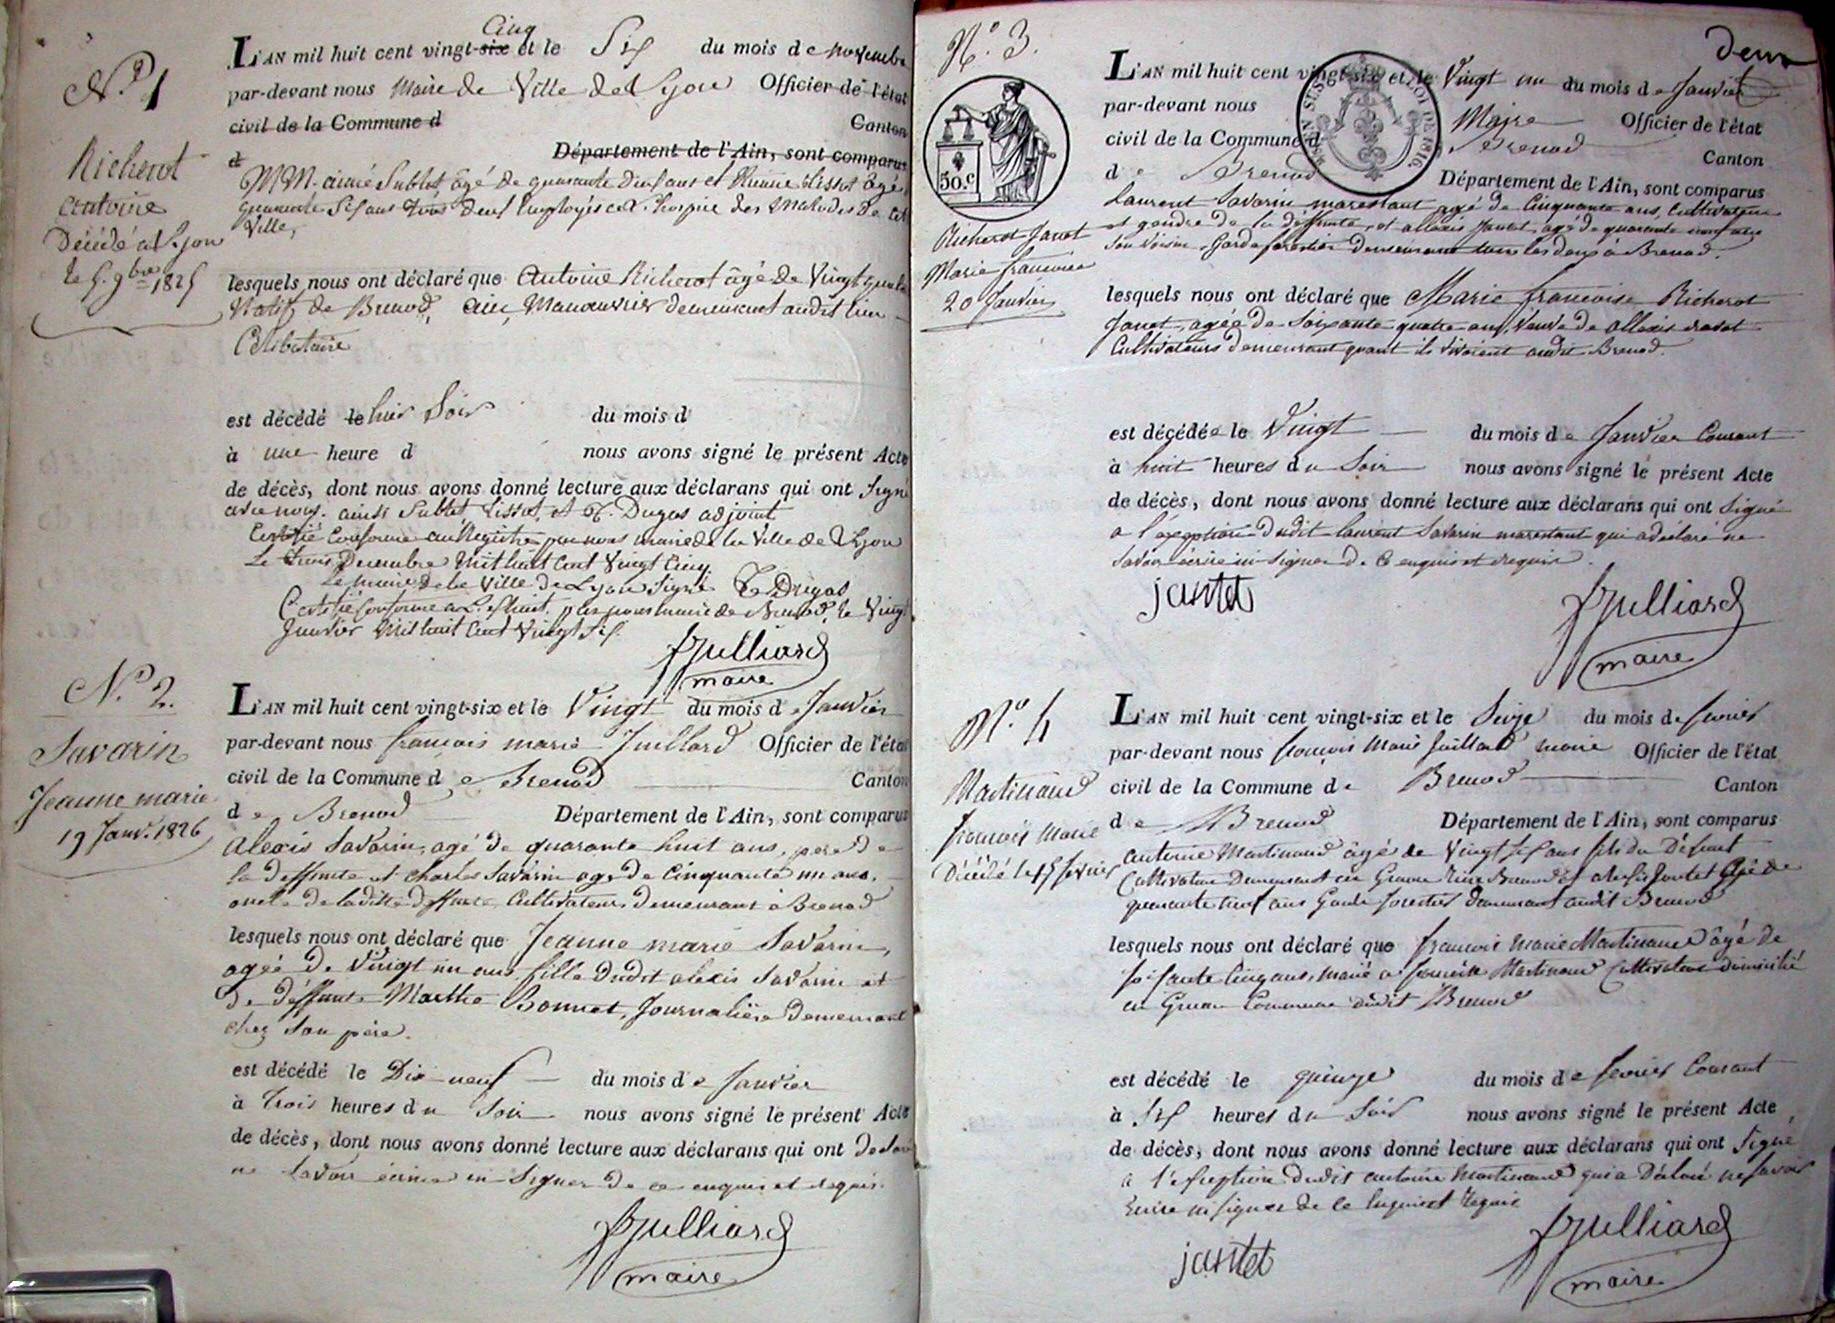 N.º 1
Richerot
antoine
Décédé a Lyon
le 5. 9bre 1825
Cinq
L'AN mil huit cent vingt-six et le Six du mois de novembre
par-devant nous Maire de Ville de Lyon Officier de l'état
civil de la Commune d Canton
d Département de l'Ain, sont comparus
MM. aimé Sublet âgé de quarante Deux ans et Lissot âgé
quarante Six ans tous deux Employés a l'hospice des Malades De cet
Ville,
lesquels nous ont déclaré que Antoine Richerot âgé de Vingt quatre
Natif de Brenod, ain, Manouvrier demeurant audit lieu
Célibataire
est décédé le hier Soir du mois d
à une heure d nous avons signé le présent Acte
de décès, dont nous avons donné lecture aux déclarans qui ont Signé
avec nous. ainsi Sublet Lissot, et Dugas adjoint
Certifié Conforme au Registre par nous maire de la Ville de Lyon
Le trois Decembre Mil huit Cent Vingt Cinq
Le maire de la Ville de Lyon Signé Dugas
Certifié Conforme a par nous maire de Brenod, le Vingt
Janvier Mil huit Cent Vingt Six.
Julliard
maire
N.º 2.
Savarin
Jeanne marie
19 Janv. 1826
L'AN mil huit cent vingt-six et le Vingt du mois de Janvier
par-devant nous francois marie Juillard Officier de l'état
civil de la Commune de Brenod Canton
de Brenod Département de l'Ain, sont comparus
Alexis Savarin, agé de quarante huit ans, pere de
la deffunte et charles Savarin age de Cinquante un ans,
oncle de ladite deffunte, Cultivateurs demeurant à Brenod
lesquels nous ont déclaré que Jeanne marie Savarin,
agée de Vingt un ans fille dudit alexis Savarin et
de deffunte Marthe Bonnet, Journalière demeurant
chez Son père.
est décédé le Dix-neuf du mois de Janvier
à trois heures du Soir nous avons signé le présent Acte
de décès, dont nous avons donné lecture aux déclarans qui ont declaré
ne Savoir écrire ni Signer de ce enquis et requis.
Julliard
maire
deux
N.º 3.
50.c
Richerot Janet
Marie francoise
20 Janvier
L'AN mil huit cent vingt-six et le Vingt un du mois de Janvier
par-devant nous Maire Officier de l'état
civil de la Commune d Brenod Canton
de Brenod Département de l'Ain, sont comparus
Laurent Savarin marestant agé de Cinquante ans, Cultivateur
et gendre de la déffunte, et allexis Jantet agé de quarante neuf ans
Son Voisin, Garde forestier demeurant tous les deux à Brenod.
lesquels nous ont déclaré que Marie francoise Richerot
Janet, agée de Soixante quatre ans, Veuve de allexis ravet
Cultivateurs demeurant quant ils Vivoient audit Brenod.
est décédée le Vingt du mois de Janvier Courant
à huit heures du Soir nous avons signé le présent Acte
de décès, dont nous avons donné lecture aux déclarans qui ont Signé
a l'exeption dudit laurent Savarin marestant qui a déclaré ne
Savoir écrire ni Signer de Ce enquis et requis.
jantet
Julliard
maire
N.º 4
Martinand
francois Marie
Décédé le 15 fevrier
L'AN mil huit cent vingt-six et le Seize du mois de fevrier
par-devant nous francois Marie Juillard maire Officier de l'état
civil de la Commune de Brenod Canton
de Brenod Département de l'Ain, sont comparus
antoine Martinand âgé de Vingt Six ans fils du Défunt
Cultivateur Demeurant en Gruan Brenod et alexis Jantet âgé de
quarante neuf ans Garde forestier demeurant audit Brenod
lesquels nous ont déclaré que francois Marie Martinand âgé de
Soixante Cinq ans, marié a Martinand Cultivateur domicilié
en Gruan Commune dudit Brenod
est décédé le quinze du mois de fevrier Courant
à Six heures du Soir nous avons signé le présent Acte
de décès, dont nous avons donné lecture aux déclarans qui ont Signé
a l'exception dudit antoine Martinand qui a Déclaré ne Savoir
Ecrire ni Signer de Ce Enquis et Requis
jantet
Julliard
maire